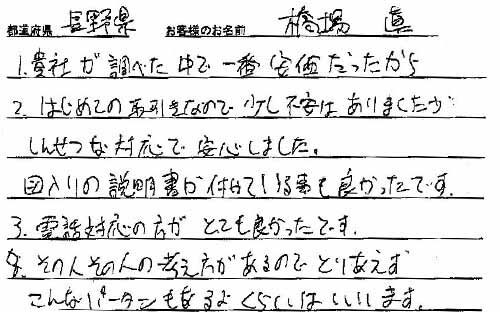 都道府県 長野県 お客様のお名前 橋場 真
1.貴社が調べた中で一番安価だったから
2.はじめての取引きなので少し不安はありましたが
しんせつな対応で安心しました。
図入りの説明書が付けている事も良かったです。
3.電話対応の方がとても良かったです。
4.その人その人の考え方があるのでとりあえず
こんなパターンもあるよくらいはいいます。